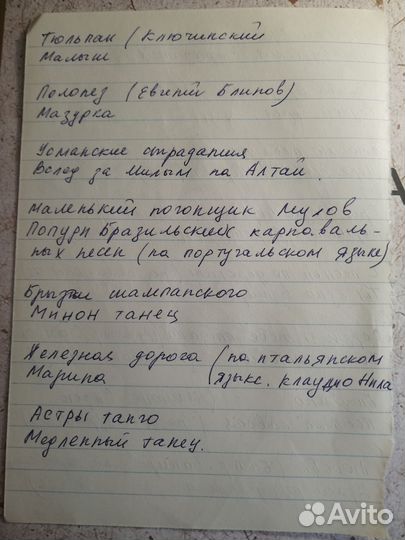 Тюльпан (Ключинский
Малыш
Полонез (Евгений Блинов)
Мазурка
Усманские страдания
Вслед за милым на Алтай.
Маленький погонщик мулов
Попурри Бразильских карнаваль-
ных песен (на португальском языке)
Брызги шампанского
Миньон танец
Железная дорога (на итальянском
Марина (языке. Клаудио Вилла
Астры танго
Медленный танец.
Avito